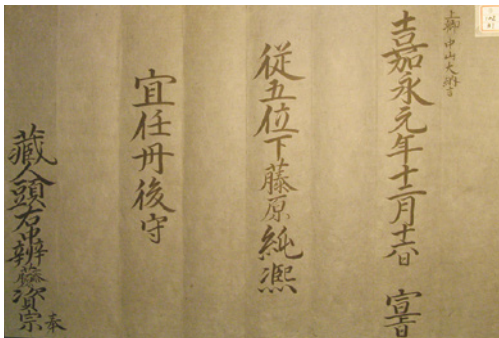 上卿 中山大納言
嘉永元年十二月十六日 宣旨
従五位下藤原純凞
宜任丹後守
藏人頭右中辨藤原資宗奉